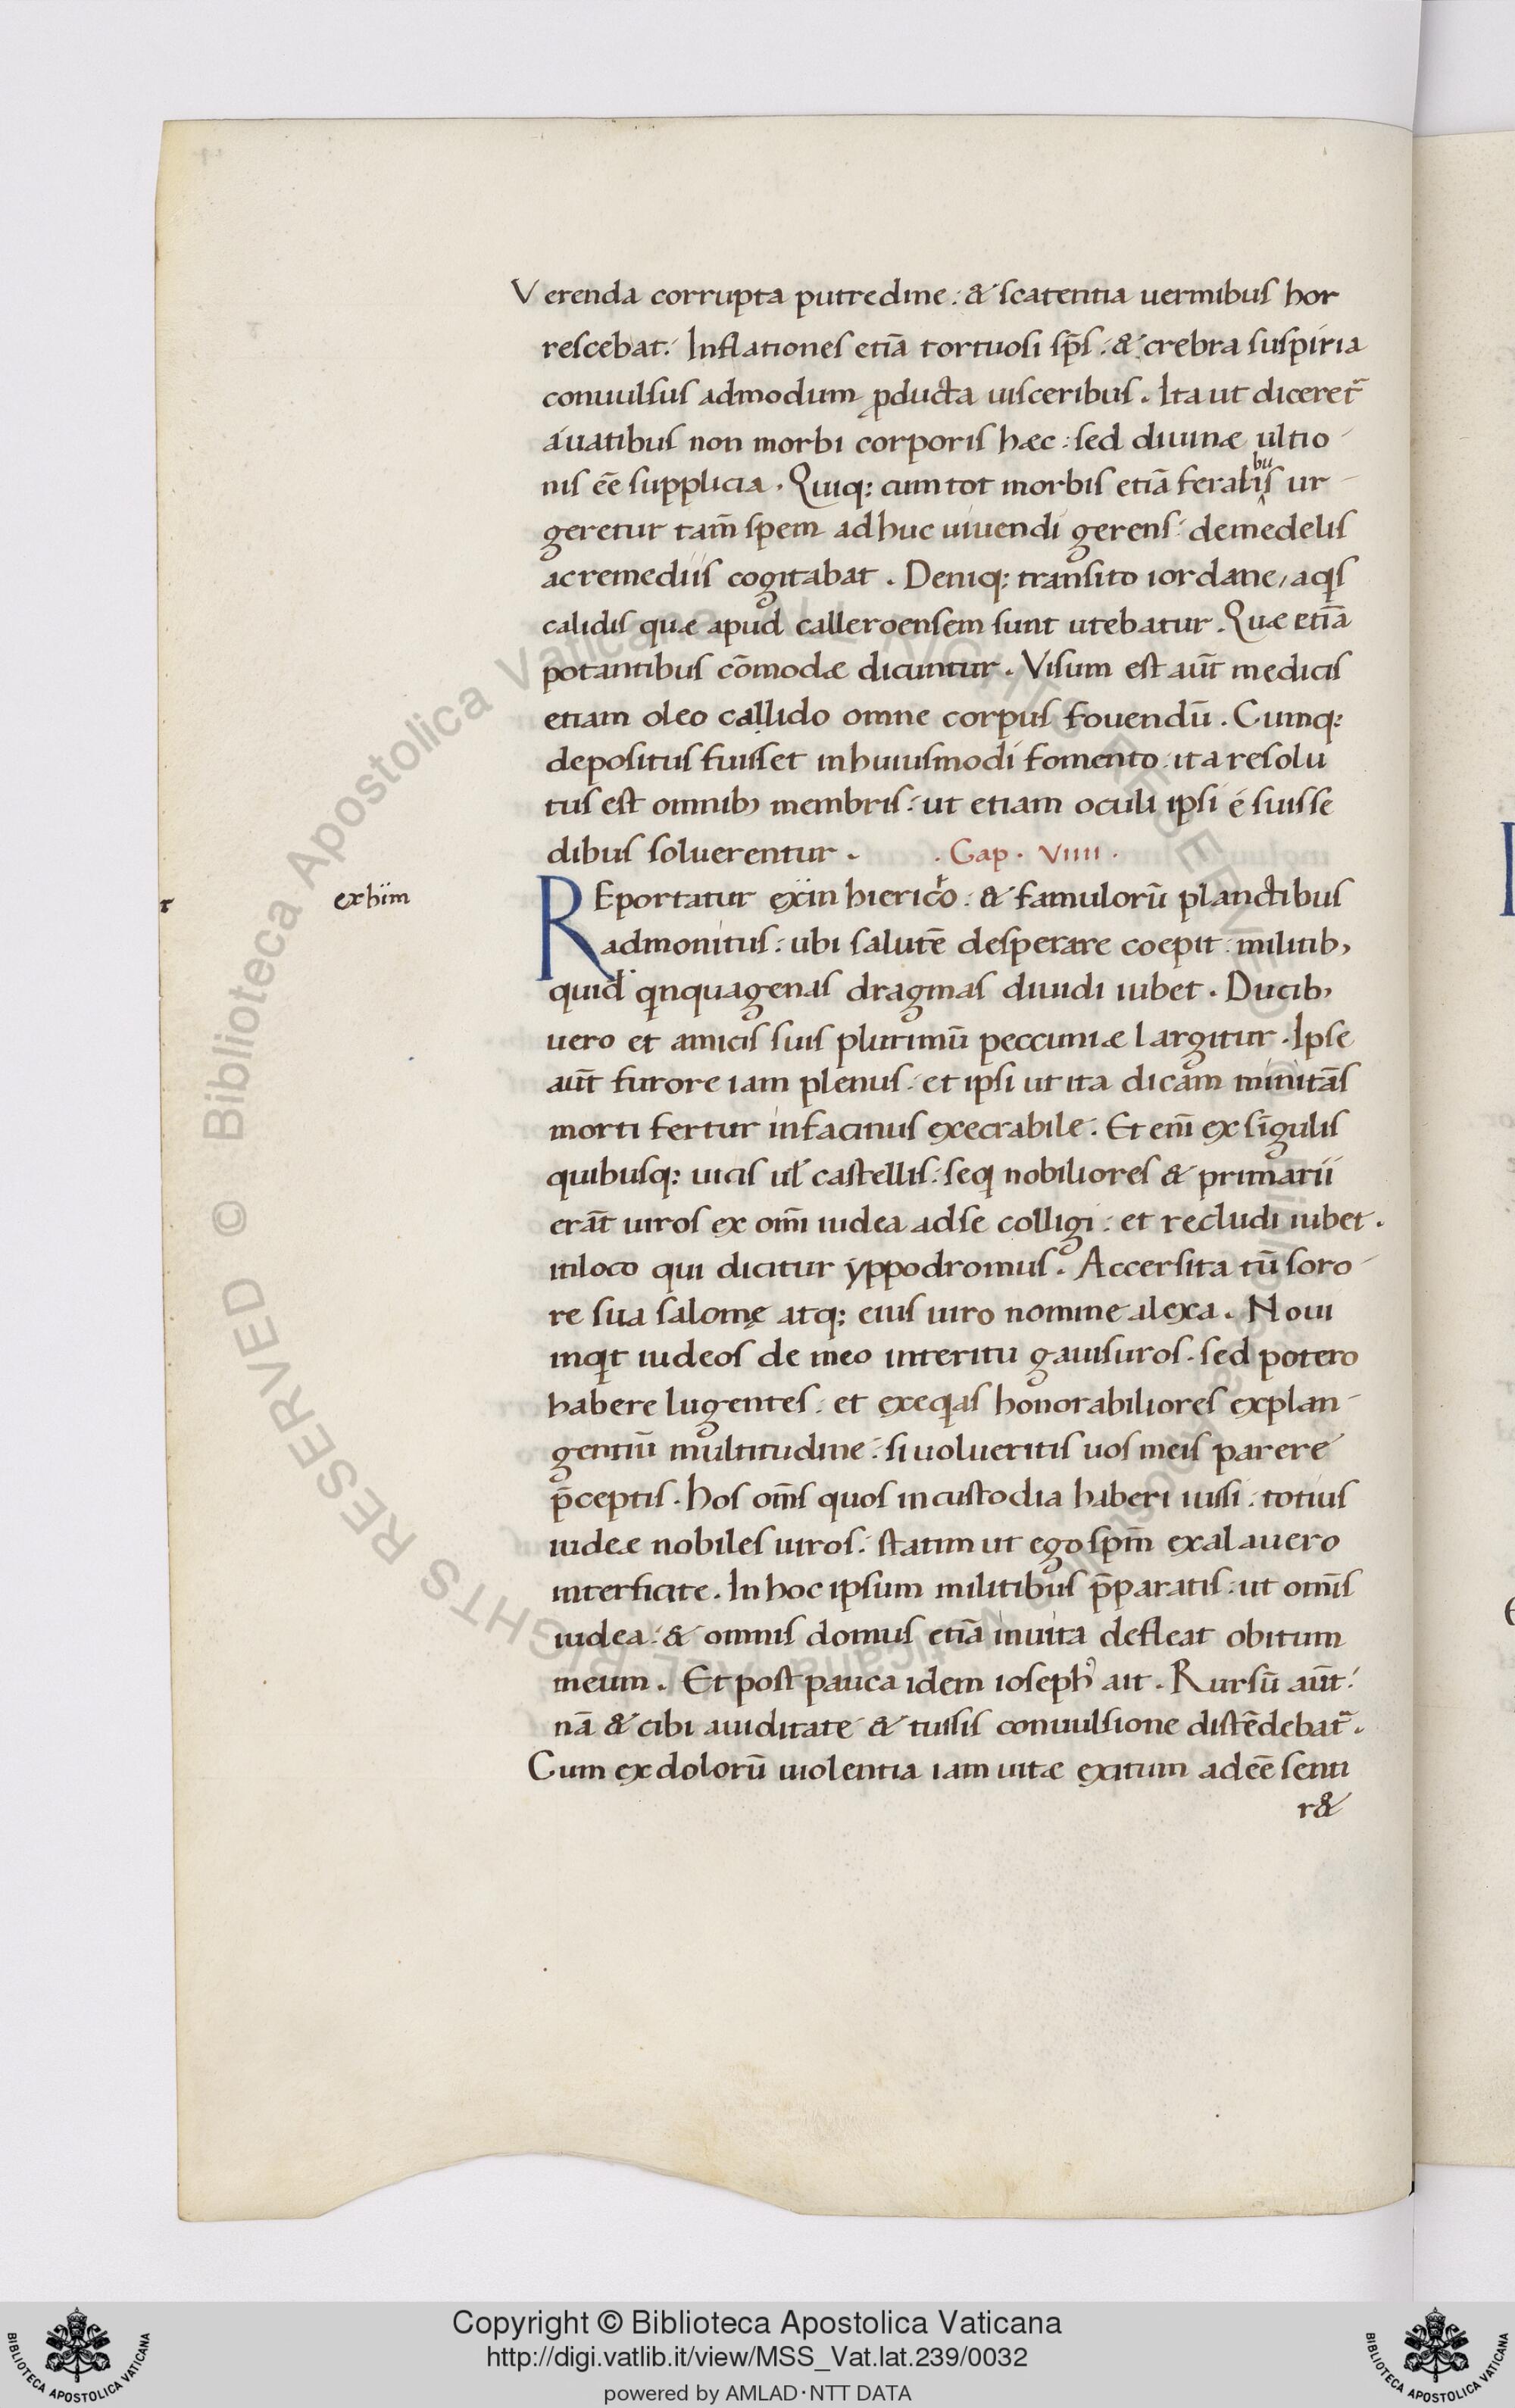 Verenda corrupta putredine: & scatentia uermibus hor
rescebat. Inflationes etiā tortuosi sp̄s: & crebra suspiria
conuulsus admodum ꝓducta uisceribus. Ita ut diceret᷑
a uatibus non morbi corporis hæc: sed diuinæ ultio
nis ēē supplicia. Quiq; cum tot morbis etiā feralibus ur
geretur tam̄ spem adhuc uiuendi gerens: de medelis
ac remediis cogitabat. Deniq; transito iordane, aqis
calidis quæ apud calleroensem sunt utebatur. Quæ etiā
potantibus cōmodæ dicuntur. Visum est aut̄ medicis
etiam oleo callido omne corpus fouendū. Cumq;
depositus fuisset in huiusmodi fomento: ita resolu
tus est omnibꝫ membris: ut etiam oculi ipsi é suis se
dibus soluerentur. .Cap. VIIII.
exhiim
REportatur exiin hiericho: & famulorū planctibus
admonitus: ubi salutē desperare coepit: militibꝫ
quid qinquagenas dragmas diuidi iubet. Ducibꝫ
uero et amicis suis plurimū peccuniæ largitur. Ipse
aut̄ furore iam plenus: et ipsi ut ita dicam minitās
morti fertur in facinus execrabile. Et eni̅ ex sīgulis
quibusq; uicis ul̓ castellis: seq nobiliores & primarii
erāt uiros ex om̄i iudea ad se colligi: et recludi iubet.
in loco qui dicitur yppodromus. Accersita tū soro
re sua salomę atq; eius uiro nomine alexa. Noui
inqit iudeos de meo interitu gauisuros. sed potero
habere lugentes: et exeqias honorabiliores ex plan
gentiū multitudine: si uolueritis uos meis parere
p̄ceptis. hos om̄s quos in custodia haberi iussi: totius
iudeæ nobiles uiros: statim ut ego spm̄ exalauero
interficite. In hoc ipsum militibus p̄paratis: ut omīs
iudea: & omnis domus etiā inuita defleat obitum
meum. Et post pauca idem ioseph᾿ ait. Rursū aut̄:
nā & cibi auiditate & tussis conuulsione distēdebat᷑.
Cum ex dolorū uiolentia iam uitæ exitum adeē senti
r&
Copyright © Biblioteca Apostolica Vaticana
http://digi.vatlib.it/view/MSS_Vat.lat.239/0032
powered by AMLAD·NTT DATA